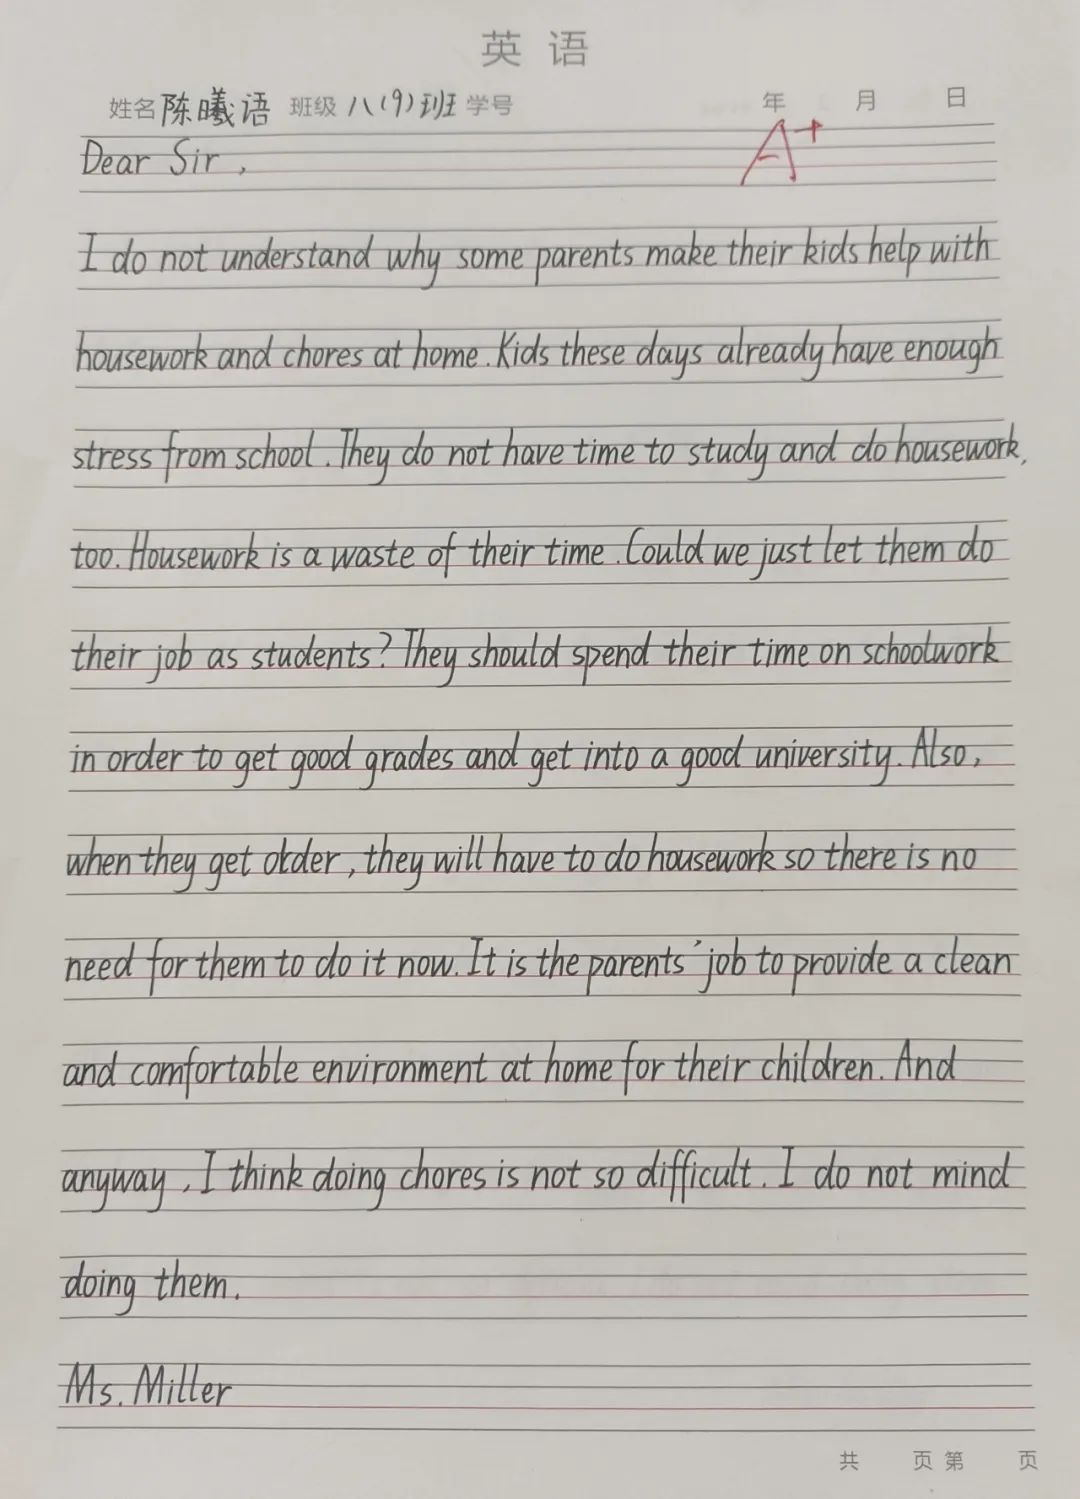 英语
姓名 陈曦语 班级 八(9)班 学号 年 月 日
A+
Dear Sir,
I do not understand why some parents make their kids help with
housework and chores at home. Kids these days already have enough
stress from school. They do not have time to study and do housework,
too. Housework is a waste of their time. Could we just let them do
their job as students? They should spend their time on schoolwork
in order to get good grades and get into a good university. Also,
when they get older, they will have to do housework so there is no
need for them to do it now. It is the parents' job to provide a clean
and comfortable environment at home for their children. And
anyway, I think doing chores is not so difficult. I do not mind
doing them.
Ms. Miller
共 页 第 页